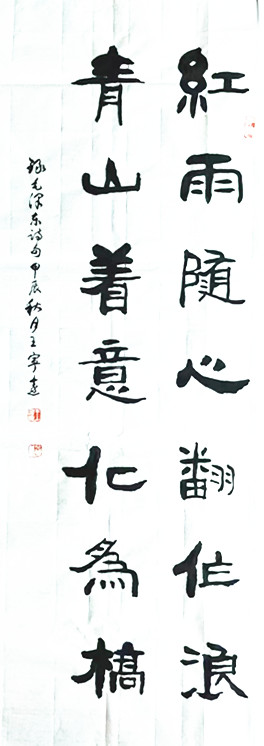 紅雨隨心翻作浪
青山着意化為橋
録毛澤东詩句甲辰秋月王寧遠